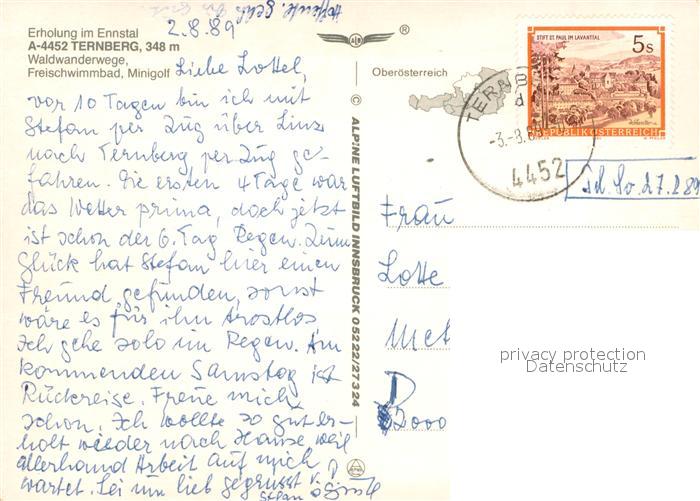 2.8.89
Erholung im Ennstal
A-4452 TERNBERG, 348 m
Waldwanderwege,
Freischwimmbad, Minigolf
Liebe Lottel,
vor 10 Tagen bin ich mit
Stefan per Zug über Linz
nach Ternberg per Zug ge-
fahren. Die ersten 4 Tage war
das Wetter prima, doch jetzt
ist schon der 6. Tag Regen. Zum
Glück hat Stefan hier einen
Freund gefunden, sonst
wäre es für ihn trostlos
Ich gehe solo im Regen. Am
kommenden Samstag ist
Rückreise. Freue mich
schon. Ich wollte so gut er-
holt wieder nach Hause weil
allerhand Arbeit auf mich
wartet. Sei nun lieb gegrüsst
Stefan
®
Oberösterreich
© ALPINE LUFTBILD INNSBRUCK 0 52 22/27 3 24
STIFT ST. PAUL IM LAVANTTAL
5 S
REPUBLIK ÖSTERREICH
4452
27.8.89
Frau
Lotte
Met
D
8000
privacy protection
Datenschutz